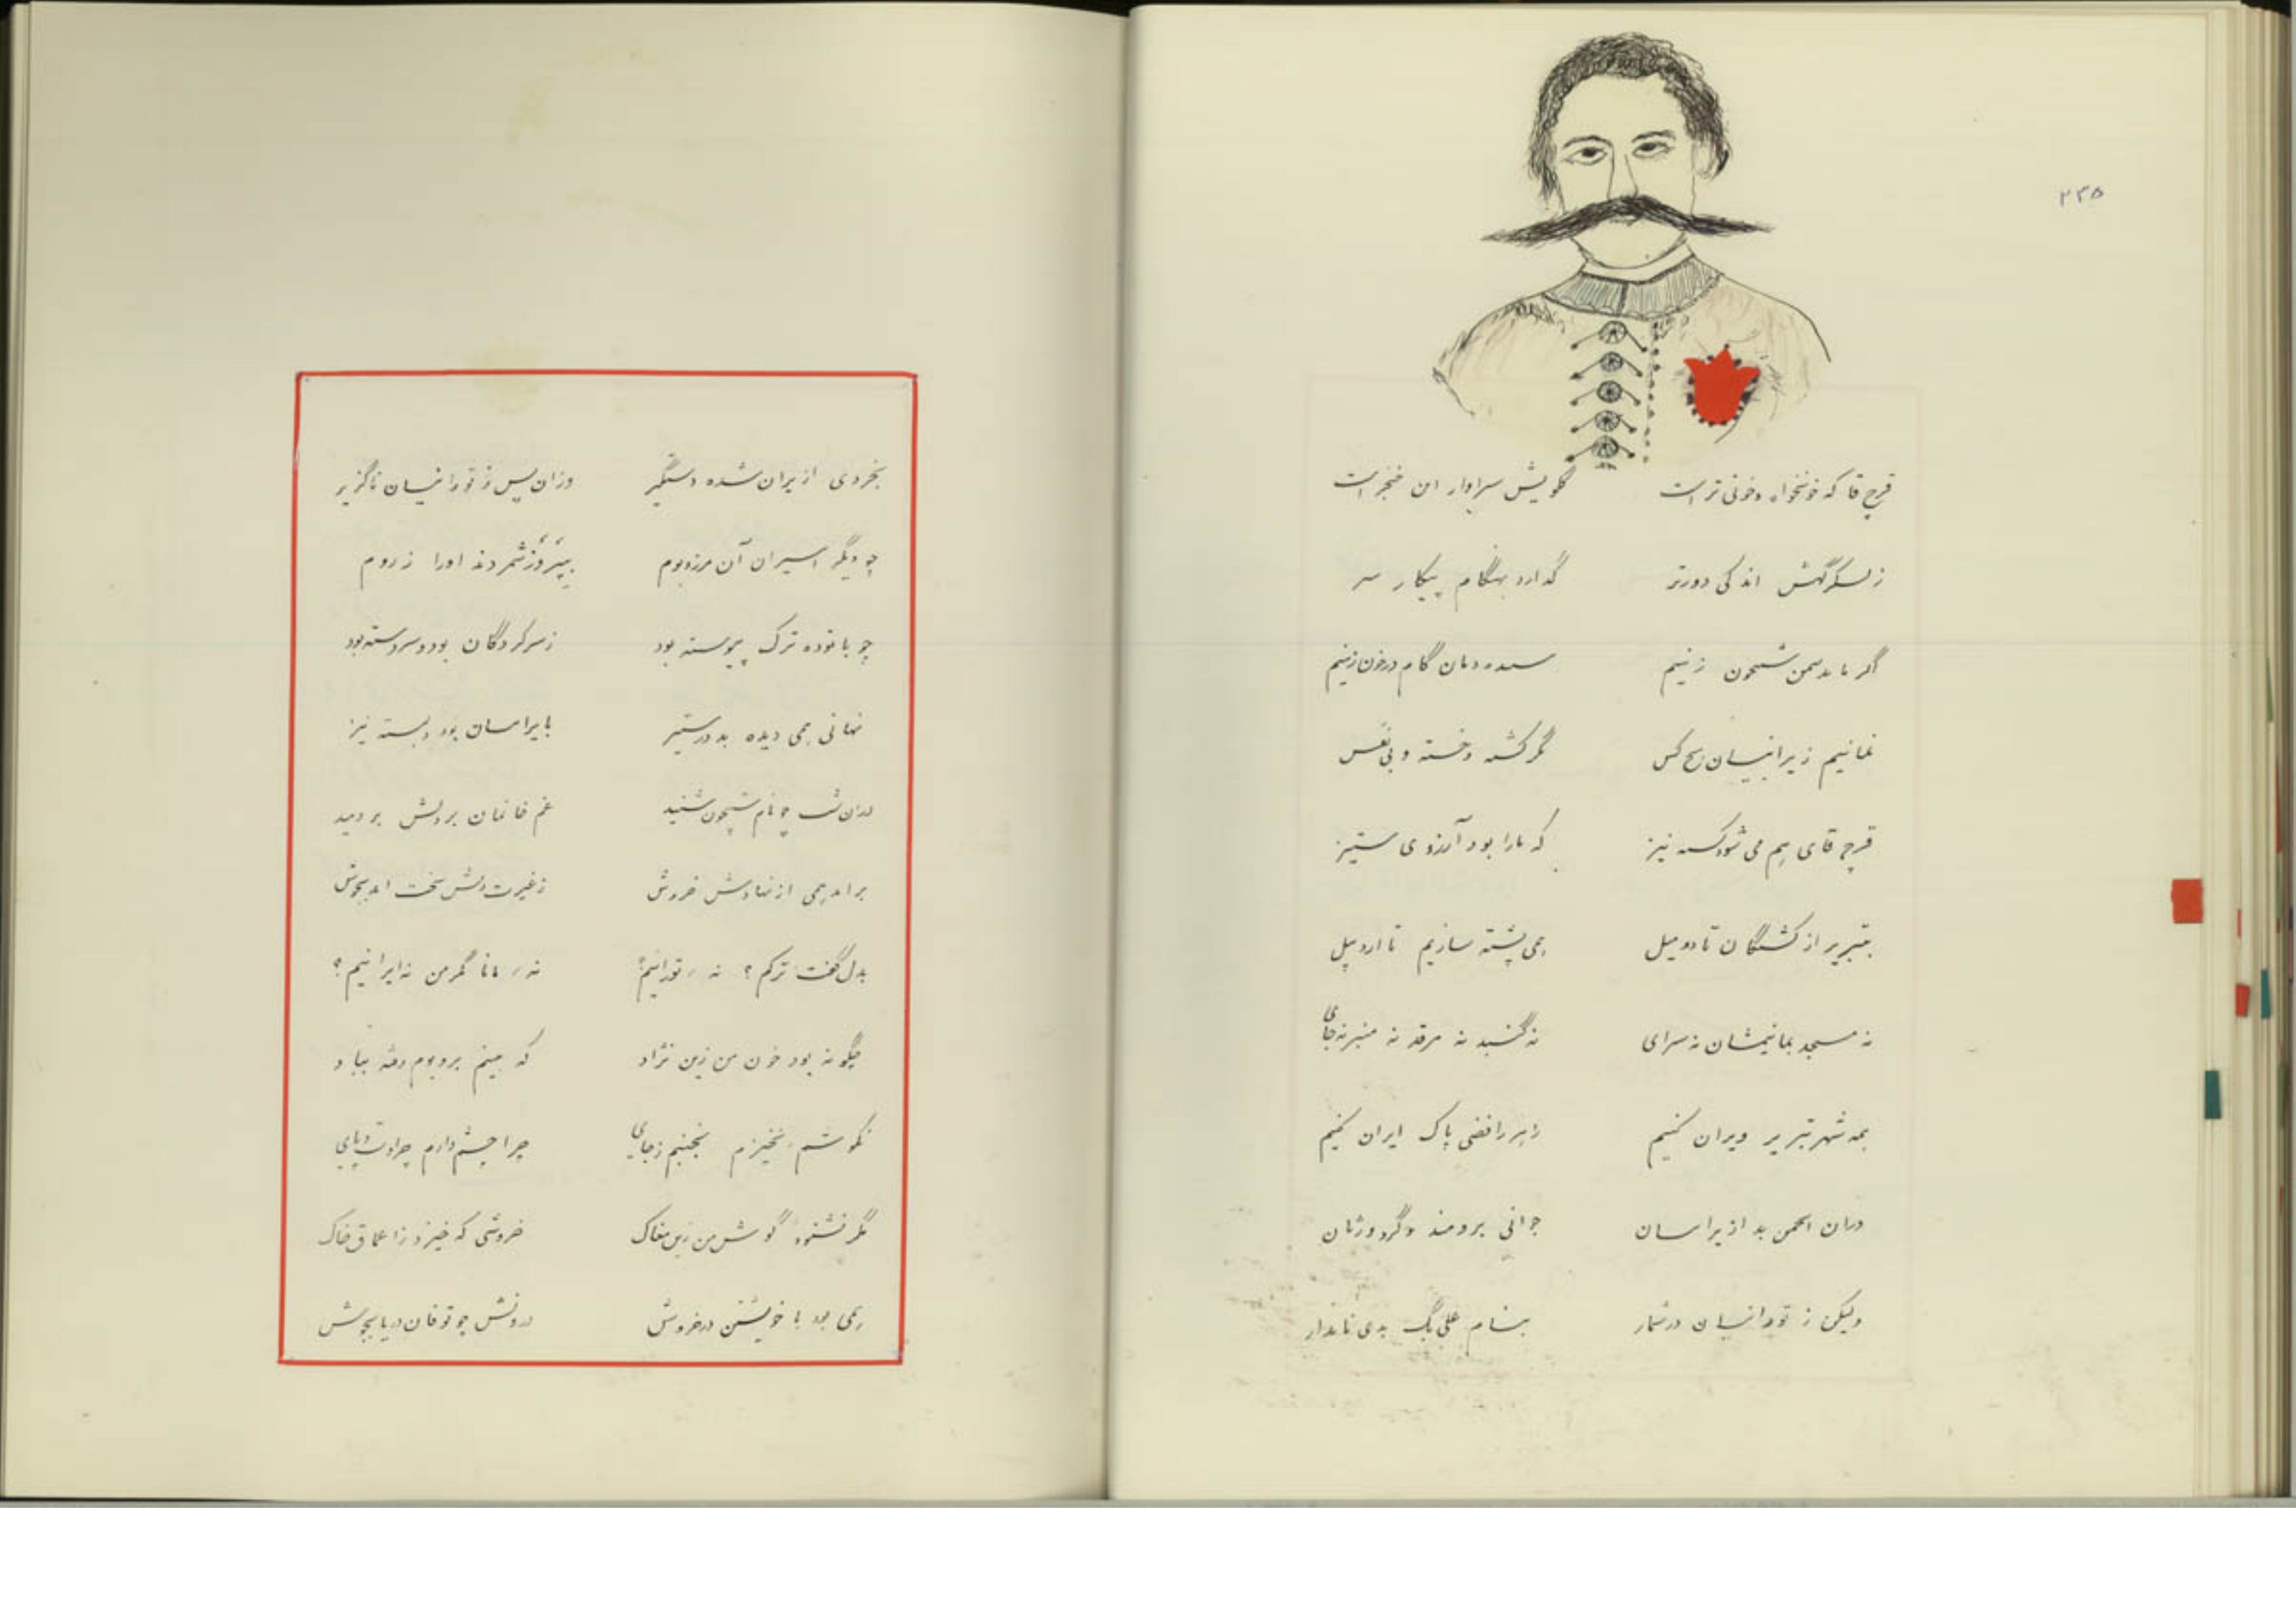 ۲۳۵
قرچ قا که خونخواه و خونی تر است گلویش سزاوار آن خنجر است
ز لشکرگهش اندکی دورتر گذارد بهنگام پیکار سر
اگر ما شبیخون زنیم سپیده دمان گام در خون زنیم
نمانیم ز ایرانیان هیچ کس مگر کشته و خسته و بی نفس
قرچ قای هم می شود کشته نیز که ما را بود آرزوی ستیز
بتبریز از کشتگان تا دو میل همی پشته سازیم تا اردبیل
نه مسجد بمانیمشان نه سرای نه گنبد نه مرقد نه منبر نه جای
همه شهر تبریز ویران کنیم رافضی پاک ایران کنیم
در آن انجمن بد از ایرانیان جوانی برومند و گرد و ژیان
ولیکن ز تورانیان در شمار بنام علی بگ بدی نامدار
بخردی از ایران شده دستگیر وزان پس ز تورانیان ناگزیر
چو دیگر اسیران آن مرز و بوم شمردند او را ز روم
چو با توده ترک پیوسته بود ز سرکردگان بود و سردسته بود
نهانی همی دیده بد در ستیز با ایرانیان بود نیز
در آن شب چو نام شبیخون شنید غم خانمان بر دلش بر دمید
بر آمد همی از نهادش خروش ز غیرت دلش سخت آمد بجوش
بدل گفت ترکم؟ نه، تورانیم؟ نه، مانا مگر من نه ایرانیم؟
چگونه بود خون من زین نژاد که بینم بر و بوم رفته بباد
نکوشم، نخیزم نجنبم ز جای چرا چشم دارم چرا دست و پای
مگر نشنود گوش من زین مغاک خروشی که خیزد ز اعماق خاک
همی بود با خویشتن در خروش درونش چو توفان دریا بجوش